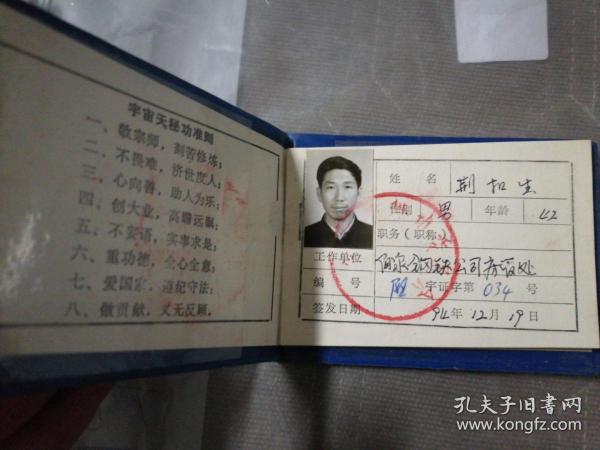 宇宙天秘功准则
一、敬宗师，刻苦修炼；
二、不畏难，济世度人；
三、心向善，助人为乐；
四、创大业，高瞻远瞩；
五、不妄语，实事求是；
六、重功德，全心全意；
七、爱国家，遵纪守法；
八、做贡献，义无反顾。
姓 名 荆扣生
性别 男 年龄 42
职务（职称）
工作单位 钢铁公司房管处
编 号 字证字第 034 号
签发日期 94年12月19日
孔夫子旧书网
www.kongfz.com